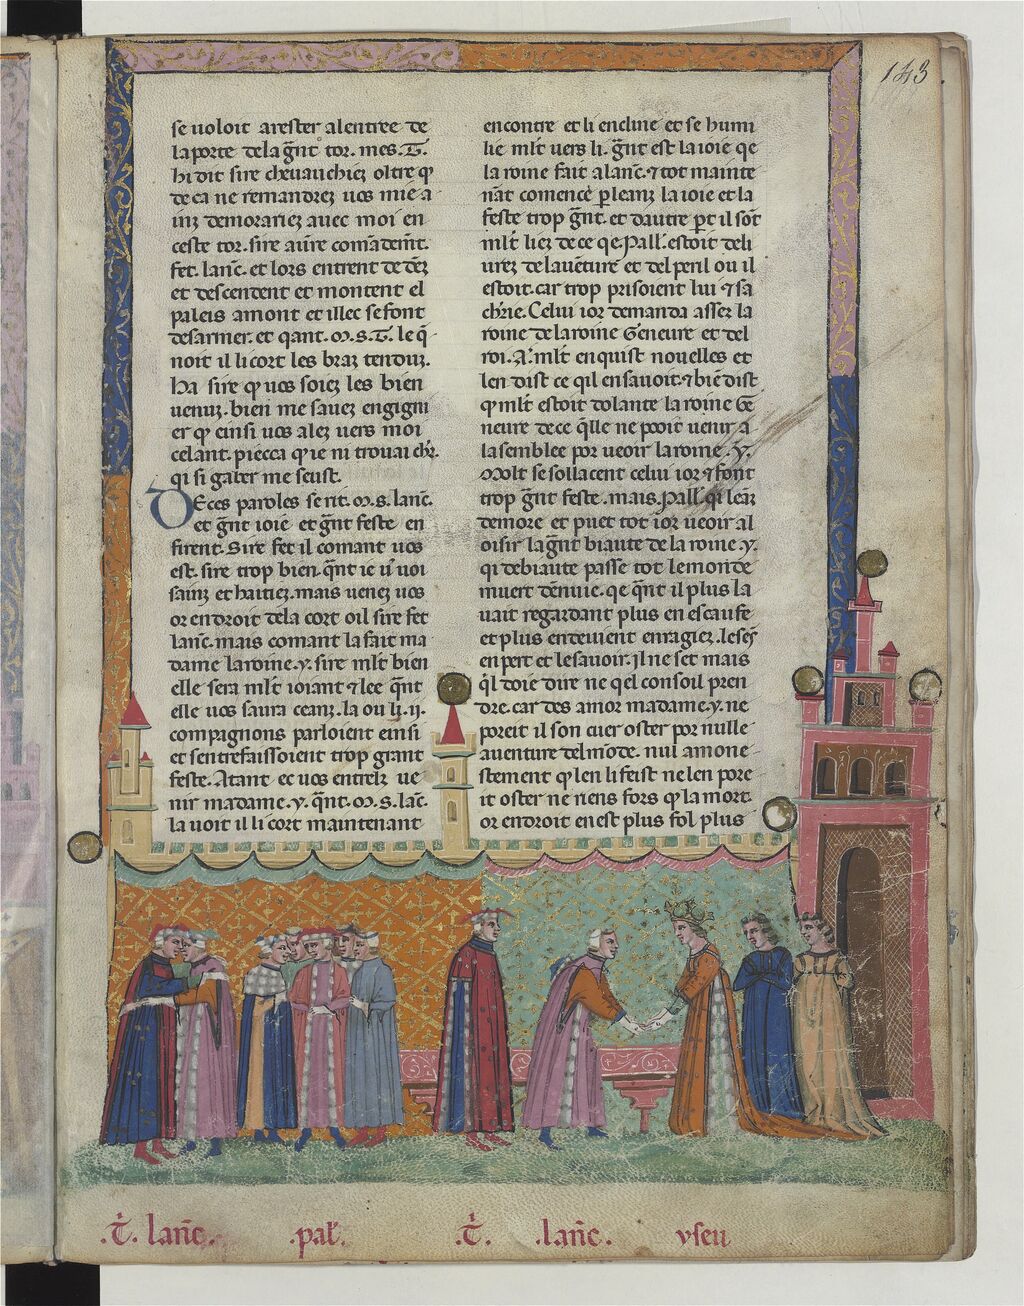 143
se uoloit arester alentree de
laporte dela g̃nt tor. mes .T.
hi dit sire cheuauchiez oltre q̃
de ca ne remandrez uos mie a
inz demorariez auec moi en
ceste tor. sire aũre comãdem̃t.
fet. lanc̃. et lors entrent dedẽz
et descendent et montent el
paleis amont et illec se font
desarmer. et qant. m. s. T. le q̃
noit il li cort les braz tenduz.
ha sire q̃ uos soiez les bien
uenuz. bien me sauez engigni
er q̃ einsi uos alez uers moi
celant. piecca q̃ ie ni trouai chr̃.
qi si gaber me seust.
DEces paroles se rit. m. s. lanc̃.
et g̃nt ioie et g̃nt feste en
firent. Sire fet il comant uos
est. sire trop bien. q̃nt ie uͥ uoi
sainz et haitiez. mais uenez uos
or endroit dela cort oil sire fet
lanc̃. mais comant la fait ma
dame laroine .y. sire ml̃t bien
elle sera ml̃t ioiant ⁊ lee q̃nt
elle uos saura ceanz. la ou li .ij.
compagnons parloient einsi
et sentrefaissoient trop grant
feste. Atant ec uos entrelz ue
nir madame .y. q̃nt. m. s. lac̃.
la uoit il li cort maintenant
encontre et li encline et se humi
lie ml̃t uers li. g̃nt est la ioie qe
la roine fait a lanc̃. ⁊ tot mainte
nãt comencẽ p̱ leanz la ioie et la
feste trop g̃nt. et dautre p̱t il sõt
ml̃t liez de ce qe. Pall̃. estoit deli
urez de lauẽture et del peril ou il
estoit. car trop prisoient lui ⁊ sa
ch̃rie. Celui ior demanda assez la
roine de la roine Geneure et del
roi. A. ml̃t en quist nouelles et
len dist ce qil en sauoit. ⁊ biẽ dist
q̃ ml̃t estoit dolante la roine Ge
neure de ce q̃lle ne pooit uenir a
lasemblee por ueoir laroine .y.
Molt se sollacent celui ior ⁊ font
trop g̃nt feste. mais. Pall̃. qi leãz
demore et puet tot ior ueoir al
oisir la g̃nt biaute de la roine .y.
qi de biaute passe tot le monde
muert dẽnuie. qe q̃nt il plus la
uait regardant plus en escaufe
et plus en deuient enragiez. le sẽs
en pert et le sauoir. il ne set mais
q̃l doie dire ne qel consoil pren
dre. car des amor madame .y. ne
poreit il son cuer oster por nulle
auenture del mõde. nul amone
stement q̃ len li feist ne len pore
it oster ne riens fors q̃ la mort.
or endroit en est plus fol plus
.T̃. lanc̃. .pal̃. .T̃. .lanc̃. yseu